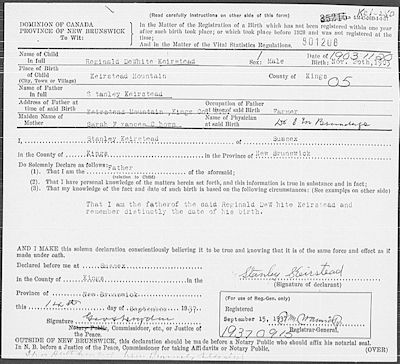 (Read carefully instructions on other side of this form)
DOMINION OF CANADA
PROVINCE OF NEW BRUNSWICK
To Wit:
In the Matter of the Registration of a Birth which has not been registered within one year
after such birth took place; or which took place before 1920 and was not registered at the
time;
And in the Matter of the Vital Statistics Regulations.
901208
Name of Child
in full
Reginald DeWhite Keirstead
Sex: Male
Date of
Birth: Nov. 20th, 1903
Place of Birth
of Child
(City, Town or Village)
Keirstead Mountain
County of Kings
Name of Father
in full
Stanley Keirstead
Address of Father at
time of said Birth
Keirstead Mountain, Kings Co
Occupation of Father
at time of said Birth
Farmer
Maiden Name of
Mother
Sarah Frances
Name of Physician
at said Birth
I, Stanley Keirstead of Sussex
in the County of Kings in the Province of New Brunswick
Do Solemnly Declare as follows:
(1). That I am the Father of the aforesaid;
(Relation to Child)
(2). That I have personal knowledge of the matters herein set forth, and this information is true in substance and in fact;
(3). That my knowledge of the fact and date of such birth is based on the following circumstances: (See examples on other side)
That I am the fatherof the said Reginald DeW hite Keirstead and
remember distinctly the date of his birth.
AND I MAKE this solemn declaration conscientiously believing it to be true and knowing that it is of the same force and effect as if
made under oath.
Declared before me at Sussex
in the County of Kings in the
Province of New Brunswick
this 14th day of September 1937.
Signature
Notary Public, Commissioner, etc., or Justice of
the Peace.
Stanley Keirstead
(Signature of declarant)
(For use of Reg.-Gen. only)
Registered
September 15, 1937
Registrar-General.
OUTSIDE OF NEW BRUNSWICK, this declaration should be made before a Notary Public who should affix his notarial seal.
In N. B. before a Justice of the Peace, Commissioner for taking Affidavits or Notary Public.
(OVER)